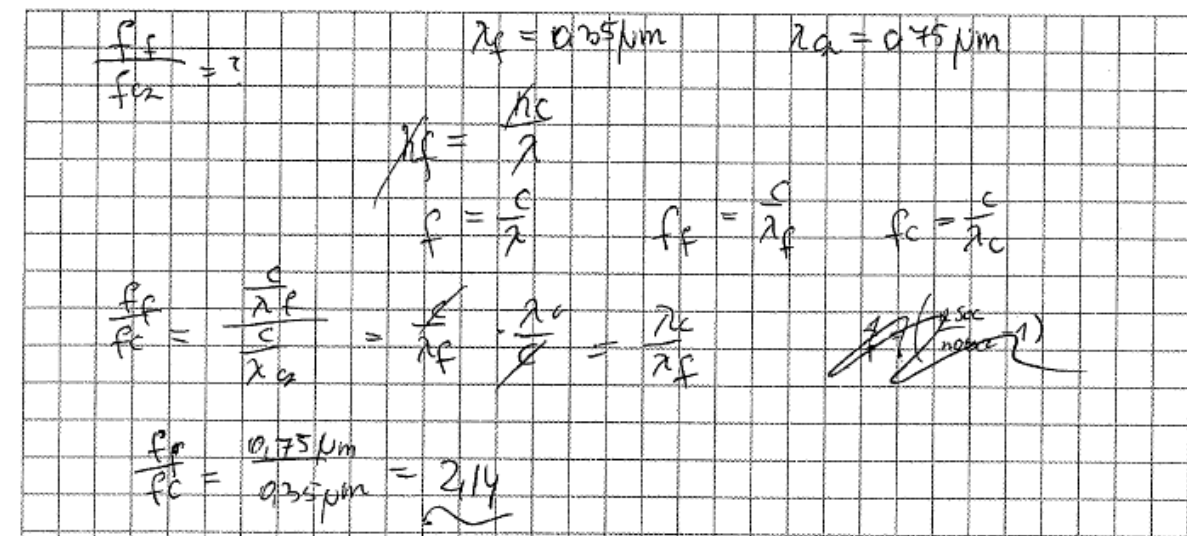 f_f / f_cz = ? λ_f = 0,35 μm λ_cz = 0,75 μm
hf = hc / λ
f = c / λ f_f = c / λ_f f_c = c / λ_c
f_f / f_c = (c / λ_f) / (c / λ_cz) = c / λ_f · λ_c / c = λ_c / λ_f
f_f / f_c = 0,75 μm / 0,35 μm = 2,14